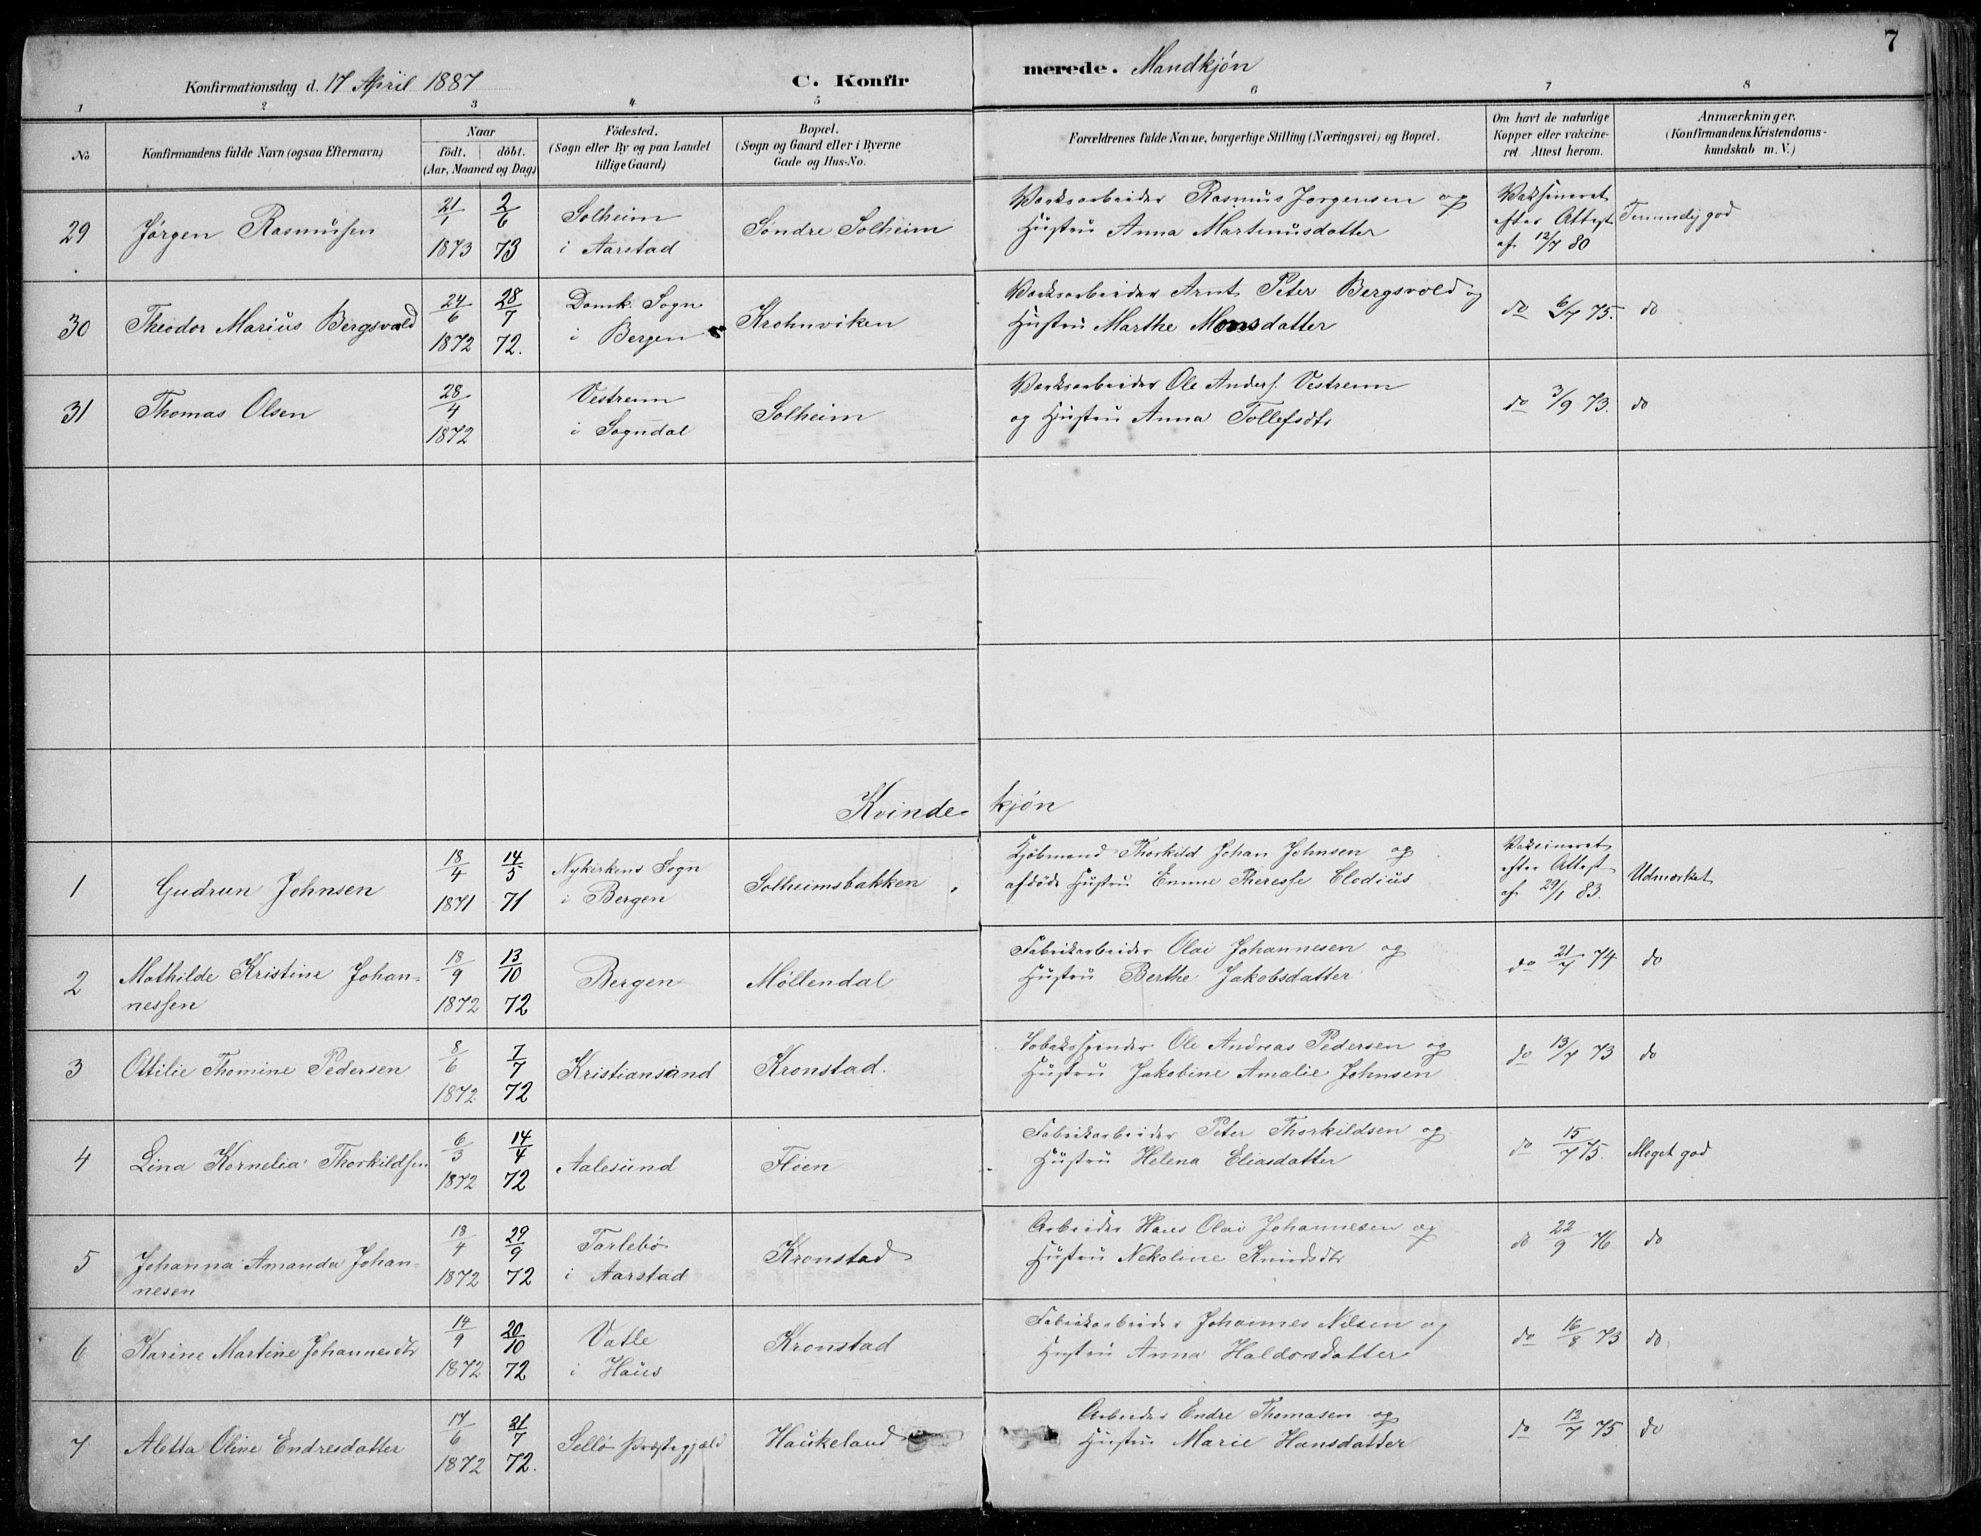 7
Konfirmationsdag d. 17 April 1887
C. Konfir
merede. Mandkjøn
1 2 3 4 5 6 7 8
No
Konfirmandens fulde Navn (ogsaa Efternavn)
Naar
födt. döbt.
(Aar, Maaned og Dag)
Födested.
(Sogn eller By og paa Landet
tillige Gaard)
Bopæl.
(Sogn og Gaard eller i Byerne
Gade og Hus-No.
Forældrenes fulde Navne, borgerlige Stilling (Næringsvei) og Bopæl.
Om havt de naturlige
Kopper eller vakcine-
ret. Attest herom.
Anmærkninger.
(Konfirmandens Kristendoms-
kundskab m. V.)
29 Jørgen Rasmussen
21/1 1873
2/6 73
Solheim
i Aarstad
Söndre Solheim
Værksarbeider Rasmus Jørgensen og
Hustru Anna Martinusdatter
Vaksineret
efter Attest
af 12/7 80
Temmelig god
30 Theodor Marius Bergsvold
24/6 1872
28/7 72.
Domk. Sogn
i Bergen
Krohnviken
Værksarbeider Arnt Peter Bergsvold og
Hustru Marthe Monsdatter
do 6/7 75.
do
31 Thomas Olsen
28/4 1872
Vestrem
i Sogndal
Solheim
Værksarbeider Ole Anders. Vestrem
og Hustru Anna Tollefsdtr
do 3/9 73.
do
Kvinde-
kjön
1 Gudrun Johnsen
18/4 1871
14/5 71
Nykirkens Sogn
i Bergen
Solheimsbakken
Kjöbmand Thorkild Johan Johnsen og
afdöde Hustru Emme Theresse Clodius
Vaksineret
efter Attest
af 29/1 83.
Udmærket
2 Mathilde Kristine Johan-
nessen
18/9 1872
13/10 72
Bergen
Möllendal
Fabrikarbeider Olai Johannesen og
Hustru Berthe Jakobsdatter
do 21/7 74
do
3 Ottilie Thomine Pedersen
8/6 1872
7/7 72
Kristiansand
Kronstad.
Tobaksspinder Ole Andreas Pedersen og
Hustru Jakobine Amalie Johnsen
do 13/7 73
do
4 Lina Kornelia Thorkildsen
6/3 1872
14/4 72
Aalesund
Flöen
Fabrikarbeider Peter Thorkildsen og
Hustru Helena Eliasdatter
do 15/7 75.
Meget god
5 Johanna Amanda Johan-
nesen
18/4 1872
29/9 72
Tarlebö
i Aarstad
Kronstad
Arbeider Hans Olai Johannesen og
Hustru Nekoline Knudsdtr
do 22/9 76
do
6 Karine Martine Johannesdtr
14/9 1872
20/10 72
Vatle
i Haus
Kronstad
Fabrikarbeider Johannes Nilsen og
Hustru Anna Haldorsdatter
do 16/8 73
do
7 Aletta Oline Endresdatter
17/6 1872
21/7 72.
Sellö Præstegjæld
Haukeland
Arbeider Endre Thomasen og
Hustru Marie Hansdatter
do 12/7 75
do